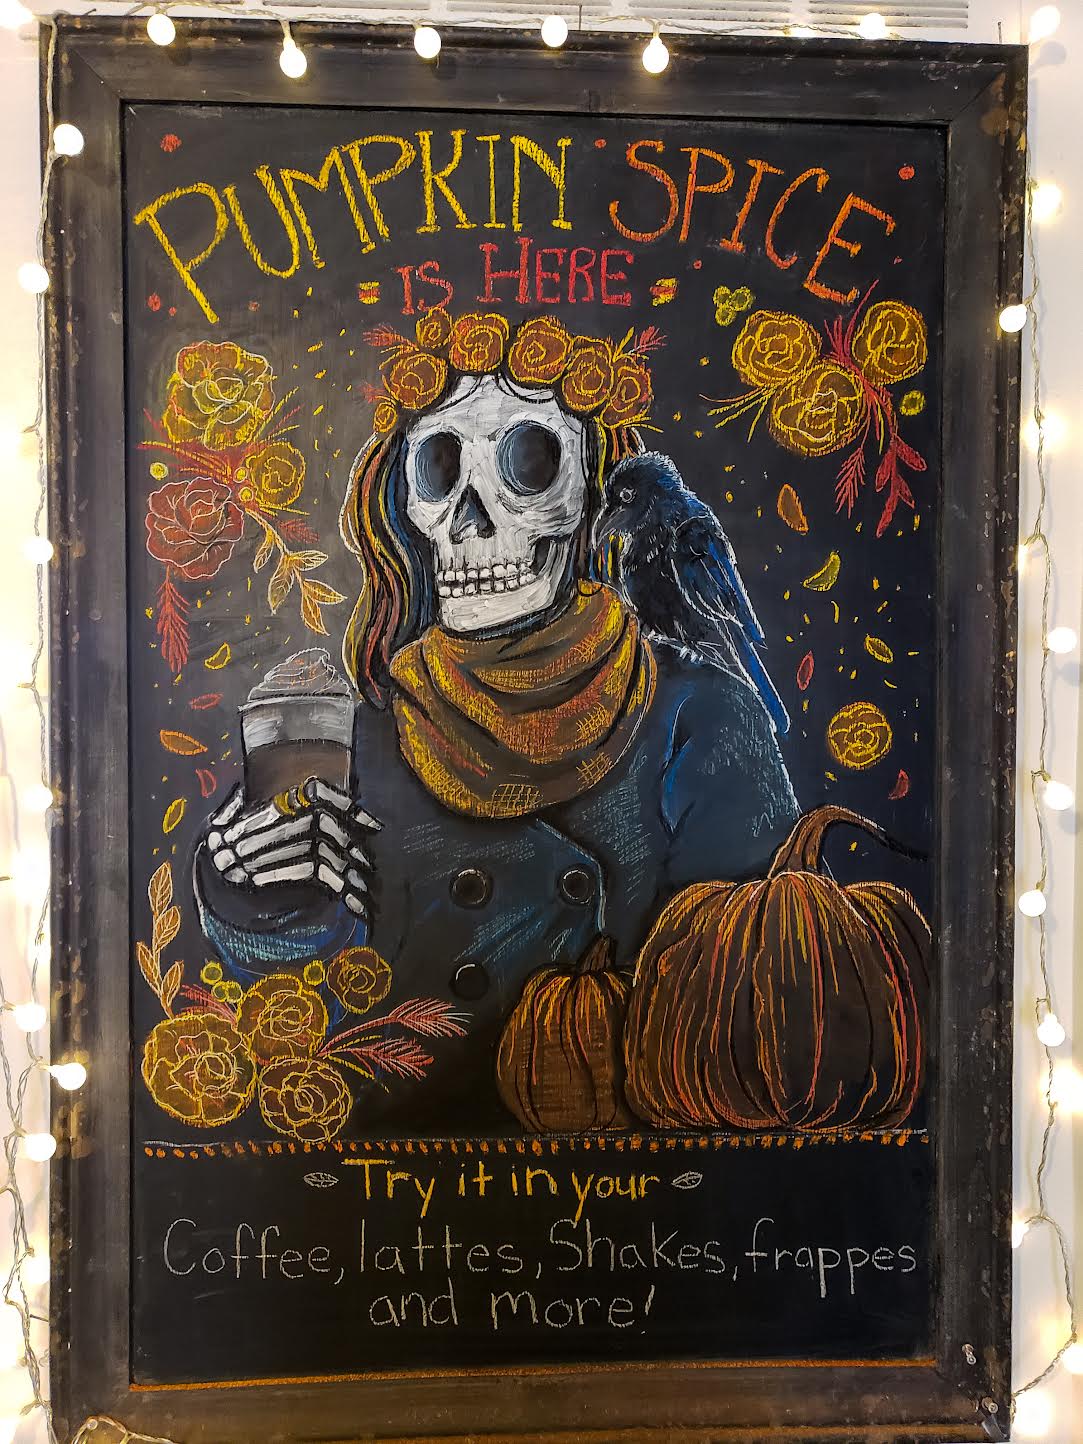 PUMPKIN SPICE
IS HERE
Try it in your
Coffee, lattes, Shakes, frappes
and more!